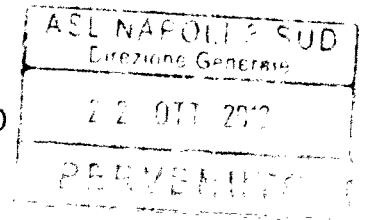 ASL NAPOLI 3 SUD
Direzione Generale
22 OTT
PERVENUTO